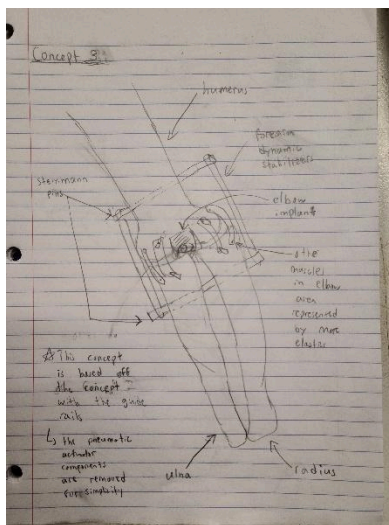 Concept 3:
humerus
forearm
dynamic
stabilizers
Steinmann
pins
elbow
implant
muscles
in elbow
area
represented
by more
elastic
☆ This concept
is based off
the concept
with the guide
rails
↳ the pneumatic
actuator
components
are removed
for simplicity
ulna
radius